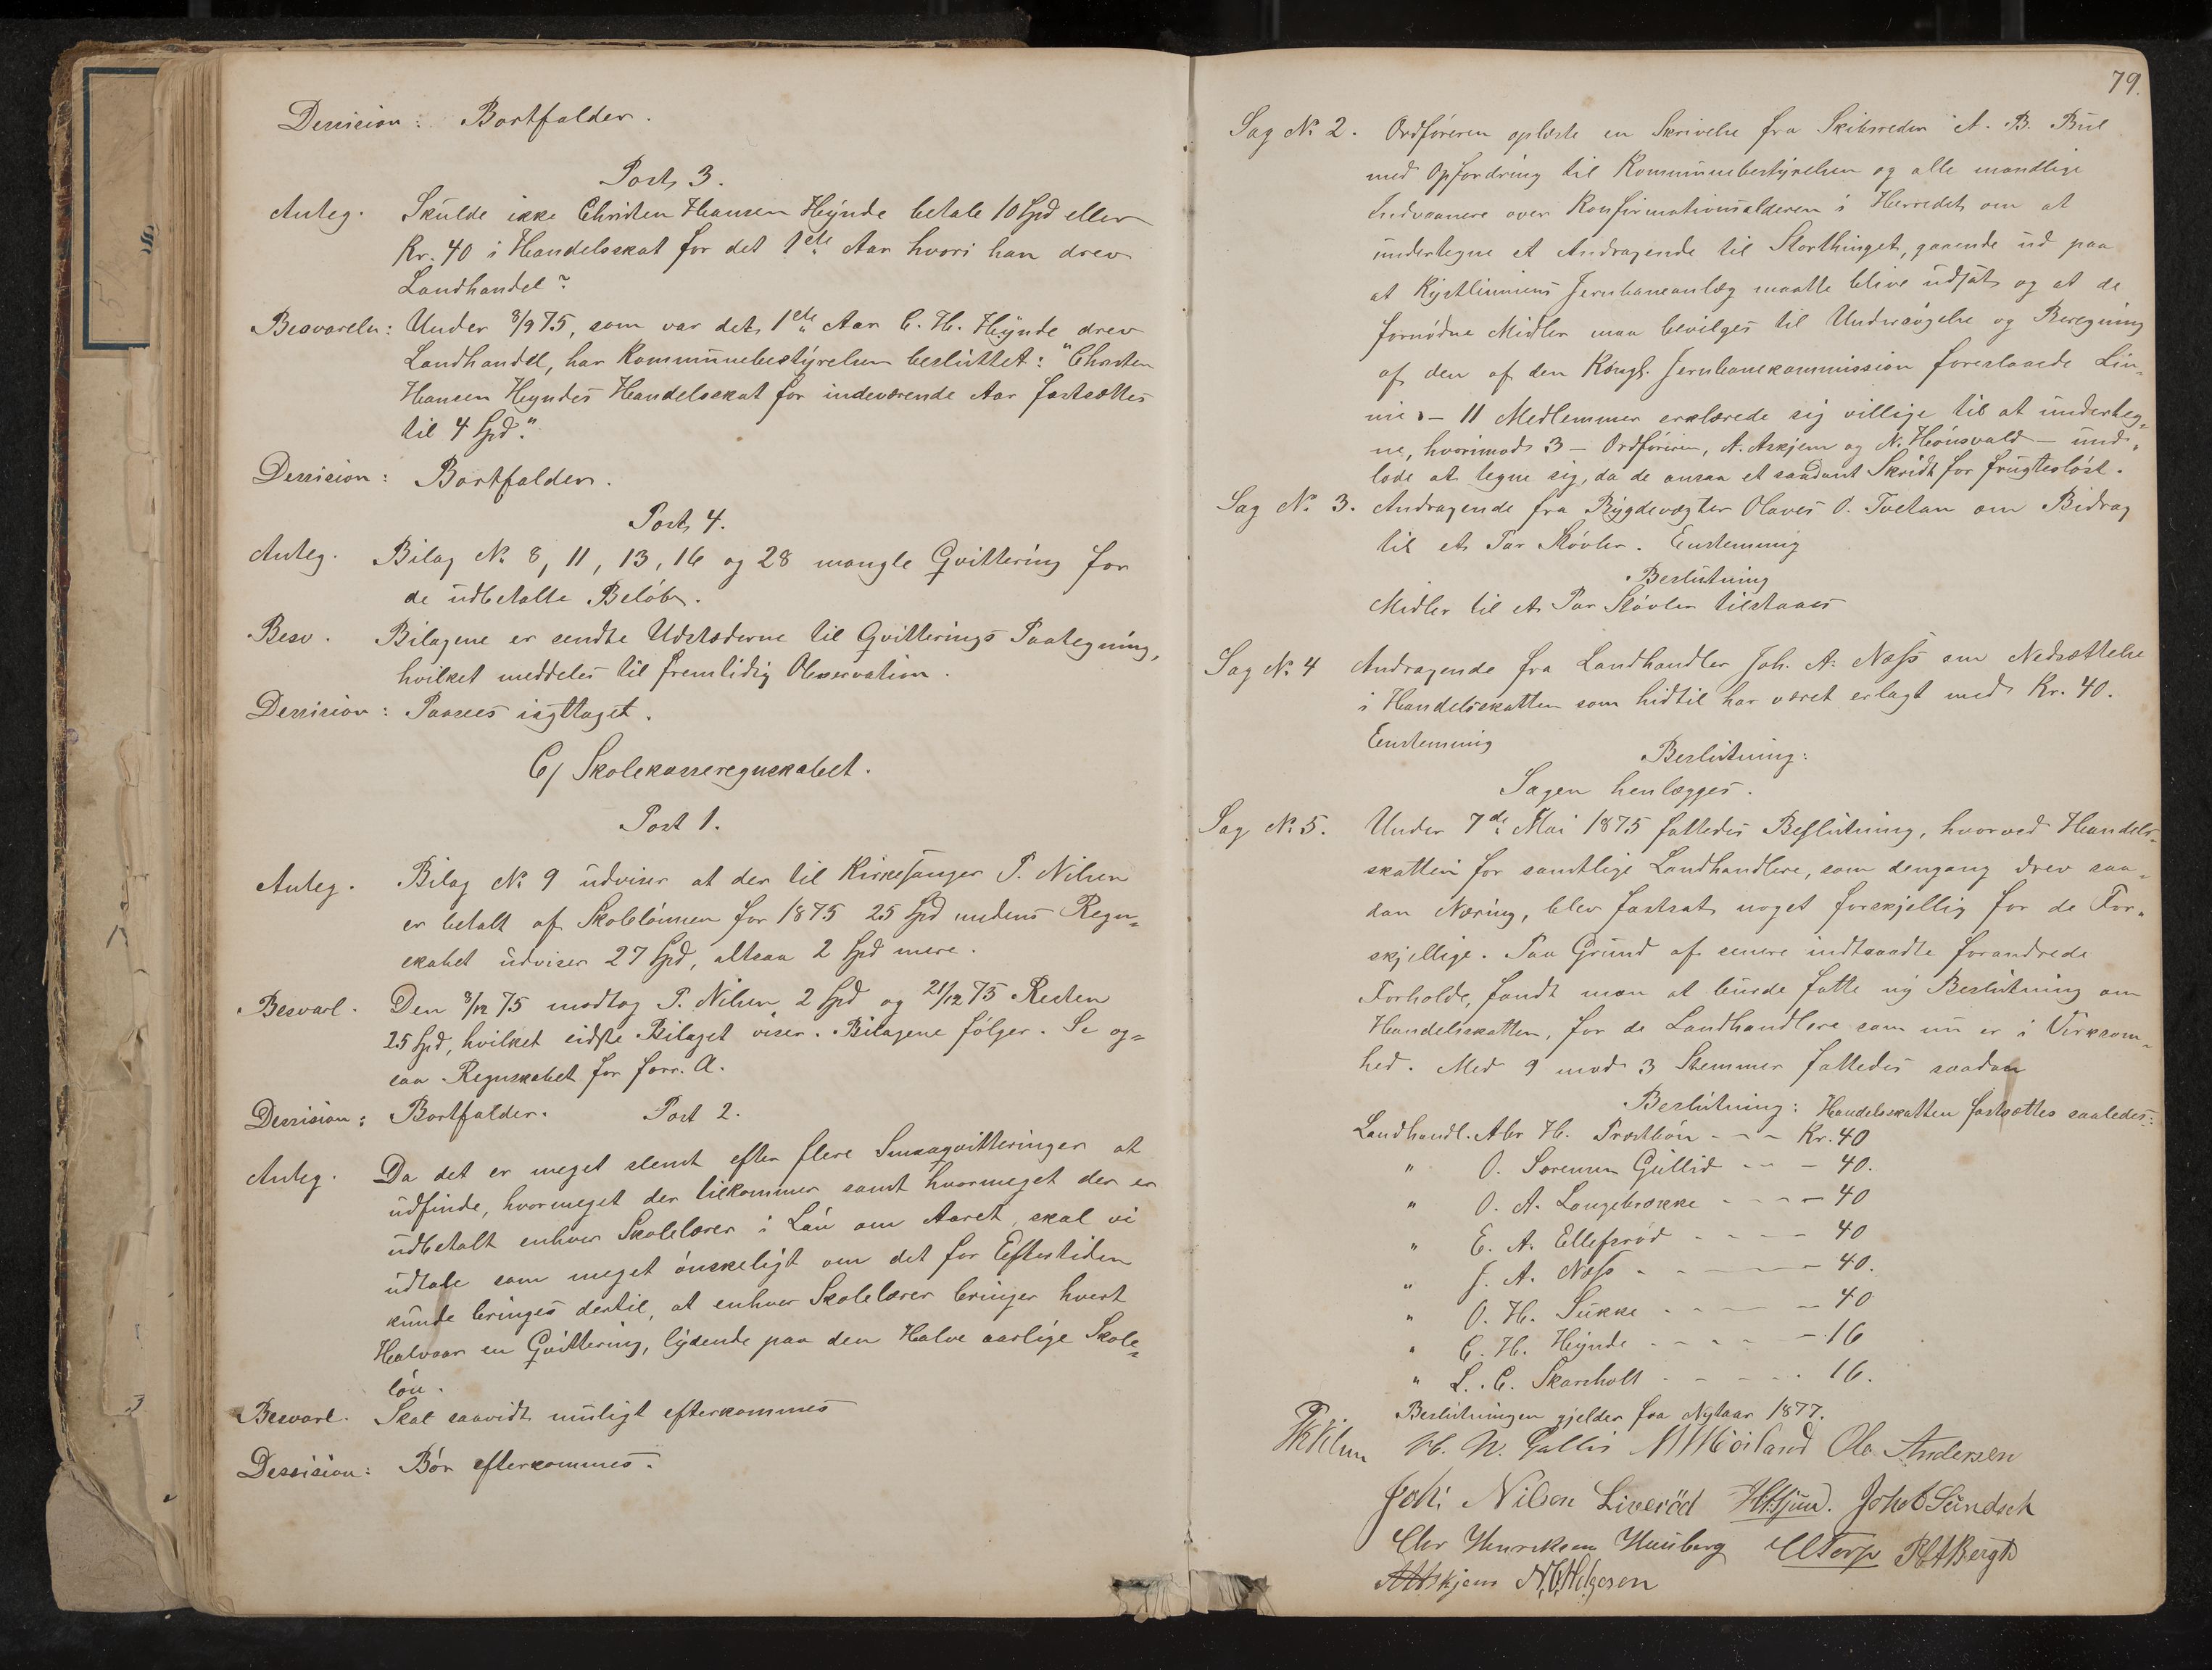 Decision: Bortfalder.
Post 3.
Anteg. Skulde ikke Christen Hansen Heÿnde betale 10 Spd eller
Kr. 40 i Handelsskat for det 1ste Aar hvori han drev
Landhandel?
Besvarelse: Under 8/9 75, som var det 1ste Aar C. H. Heÿnde drev
Landhandel, har Kommunebestyrelsen besluttet: "Christen
Hansen Heyndes Handelsskat for indeværende Aar fastsættes
til 4 Spd."
Decision: Bortfalder.
Post 4.
Anteg. Bilag No 8, 11, 13, 16 og 28 mangle Qvittering for
de udbetalte Beløb.
Besv. Bilagene er sendte Udstæderne til Qvitterings Paategning,
hvilket meddeles til fremtidig Observation.
Decision: Paasees iagttaget.
C/ Skolekasseregnskabet.
Post 1.
Anteg. Bilag No 9 udviser at der til Kirkesanger P. Nilsen
er betalt af Skolelønnen for 1875 25 Spd medens Regn-
skabet udviser 27 Spd, altsaa 2 Spd mere.
Besvarl. Den 8/12 75 modtog P. Nilsen 2 Spd og 21/12 75 Resten
25 Spd, hvilket sidste Bilaget viser. Bilagene følger. Se og-
saa Regnskabet for forr. A.
Decision: Bortfalder. Post 2.
Anteg. Da det er meget slemt efter flere Smaaqvitteringer at
udfinde, hvormeget der tilkommer samt hvormeget der er
udbetalt enhver Skolelærer i Løn om Aaret, skal vi
udtale som meget ønskeligt om det for Eftertiden
kunde bringes dertil, at enhver Skolelærer bringer hvert
Halvaar en Qvittering, lydende paa den Halve aarlige Skole-
løn.
Besvarl. Skal saavidt muligt efterkommes
Decision: Bør efterkommes.
79.
Sag No 2. Ordføreren oplæste en Skrivelse fra Skibsreder A. B. Bull
med Opfordring til Kommunebestyrelsen og alle mandlige
Indvaanere over Konfirmationsalderen i Herredet om at
undertegne et Andragende til Storthinget, gaaende ud paa
at Kystliniens Jernbaneanlæg maatte blive udsat og at de
fornødne Midler maa bevilges til Undersøgelse og Beregning
af den af den Kongl. Jernbanekommission foreslaaede Lin-
nie - 11 Medlemmer erklærede sig villige til at underteg-
ne, hvorimod 3 - Ordføreren, A. Askjem og N. Hønsvald - und-
lode at tegne sig, da de ansaa et saadant Skridt for frugtesløst.
Sag No 3. Andragende fra Bygdevægter Olaves O. Tvetan om Bidrag
til et Par Støvler. Enstemmig
Beslutning
Midler til et Par Støvler tilstaaes
Sag No 4 Andragende fra Landhandler Joh. A. Næss om Nedsættelse
i Handelsskatten som hidtil har været erlagt med Kr. 40.
Enstemmig
Beslutning:
Sagen henlægges.
Sag No 5. Under 7de Mai 1875 fattedes Beslutning, hvorved Handels-
skatten for samtlige Landhandlere, som dengang drev saa-
dan Næring, blev fastsat noget forskjellig for de For-
skjellige. Paa Grund af senere indtraadte forandrede
Forholde, fandt man at burde fatte ny Beslutning om
Handelsskatten, for de Landhandlere som nu er i Virksom-
hed. Med 9 mod 3 Stemmer fattedes saadan
Beslutning: Handelsskatten fastsættes saaledes:
Landhandl. Abr H. Præstbøn - - - Kr. 40
" O. Sørensen Gullid - - - 40.
" O. A. Langebrække - - - - 40
" E. A. Ellefsrød - - - - 40
" J. A. Næss - - - - 40.
" O. H. Sukke - - - - 40
" C. H. Heÿnde - - - - - 16
" L. C. Skarsholt - - - - - 16.
Beslutningen gjelder fra Nytaar 1877.
H. N. Gallis Ole Andersen
Joh: Nilsen Liverød
Chr Henriksen C Torp
Askjem N. Helgesen